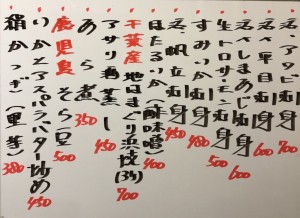 活、アワビ刺身 700
活、平目刺身 600
活、しまあじ刺身 600
生トロサーモン刺身 500
すみいか刺身 480
活、帆立刺身 450
ほたるいか(酢味噌) 400
千葉産地はまぐり浜焼(3ケ) 700
アサリ酒蒸し 450
あら煮 350
鹿児島そら豆 500
いかとアスパラバター炒め 450
絹かつぎ(里芋) 380